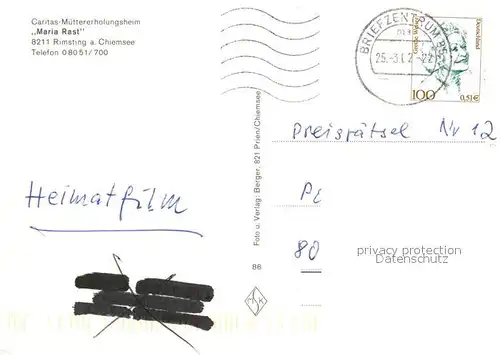 Caritas-Müttererholungsheim
„Maria Rast"
8211 Rimsting a. Chiemsee
Telefon 08051/700
Heimatfilm
Foto u. Verlag: Berger, 821 Prien/Chiemsee
86
BRIEFZENTRUM
Deutschland
100
0,51€
Preisrätsel Nr 12
PE
80
privacy protection
Datenschutz